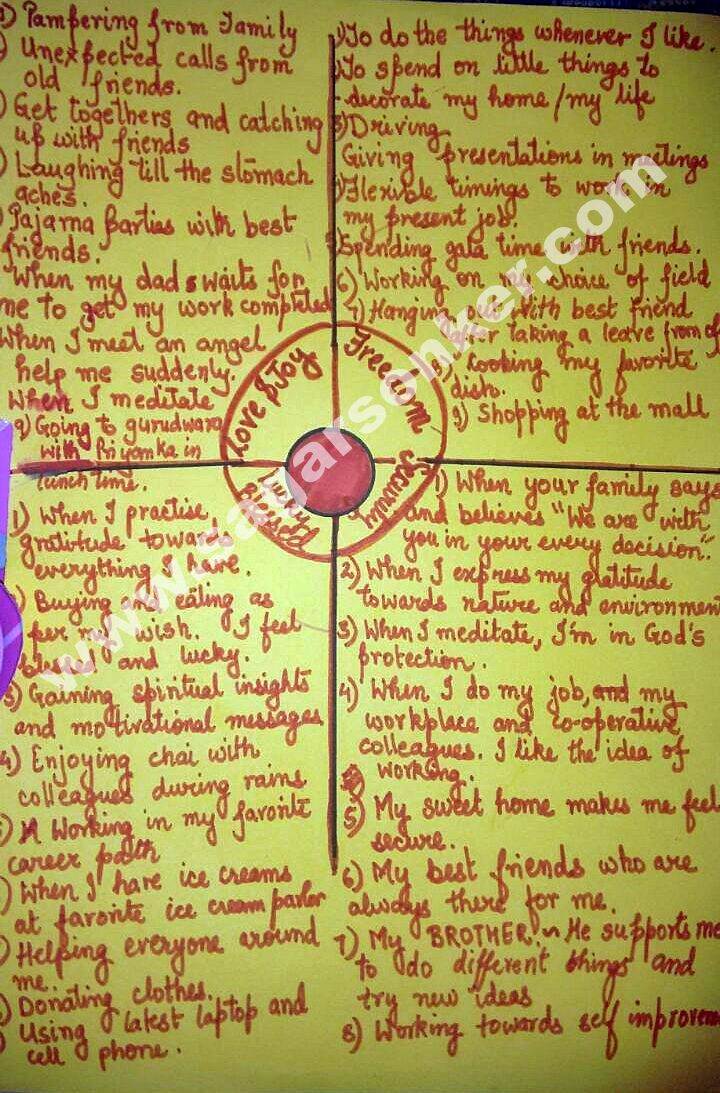 1) Pampering from Family
Unexpected calls from
old friends.
) Get togethers and catching
up with friends
) Laughing till the stomach
aches.
Pajama parties with best
friends.
When my dad waits for
me to get my work completed
When I meet an angel
help me suddenly.
When I meditate
9) Going to gurudwara
with Priyanka in
lunch time.
1) To do the things whenever I like.
To spend on little things to
decorate my home/my life
3) Driving
Giving presentations in meetings
Flexible timings to work in
my present job.
Spending gala time with friends.
6) Working on my choice of field
7) Hanging out with best friend
after taking a leave from of
8) Cooking my favorite
dish.
9) Shopping at the mall
Love & Joy
Freedom
Lucky
Blessed
Security
1) When I practise
gratitude towards
everything I have.
) Buying and eating as
per my wish. I feel
blessed and lucky.
3) Gaining spiritual insights
and motivational messages
4) Enjoying chai with
colleagues during rains
5) Working in my favorite
career path
) When I have ice creams
at favorite ice cream parlor
) Helping everyone around
me.
) Donating clothes.
) Using latest laptop and
cell phone.
1) When your family says
and believes "We are with
you in your every decision."
2) When I express my gratitude
towards nature and environmen
3) When I meditate, I'm in God's
protection.
4) When I do my job, and my
workplace and co-operative
colleagues. I like the idea of
working.
5) My sweet home makes me feel
secure.
6) My best friends who are
always there for me.
7) My BROTHER! ~ He supports me
to do different things and
try new ideas
8) Working towards self improvem
www.sagarsonker.com